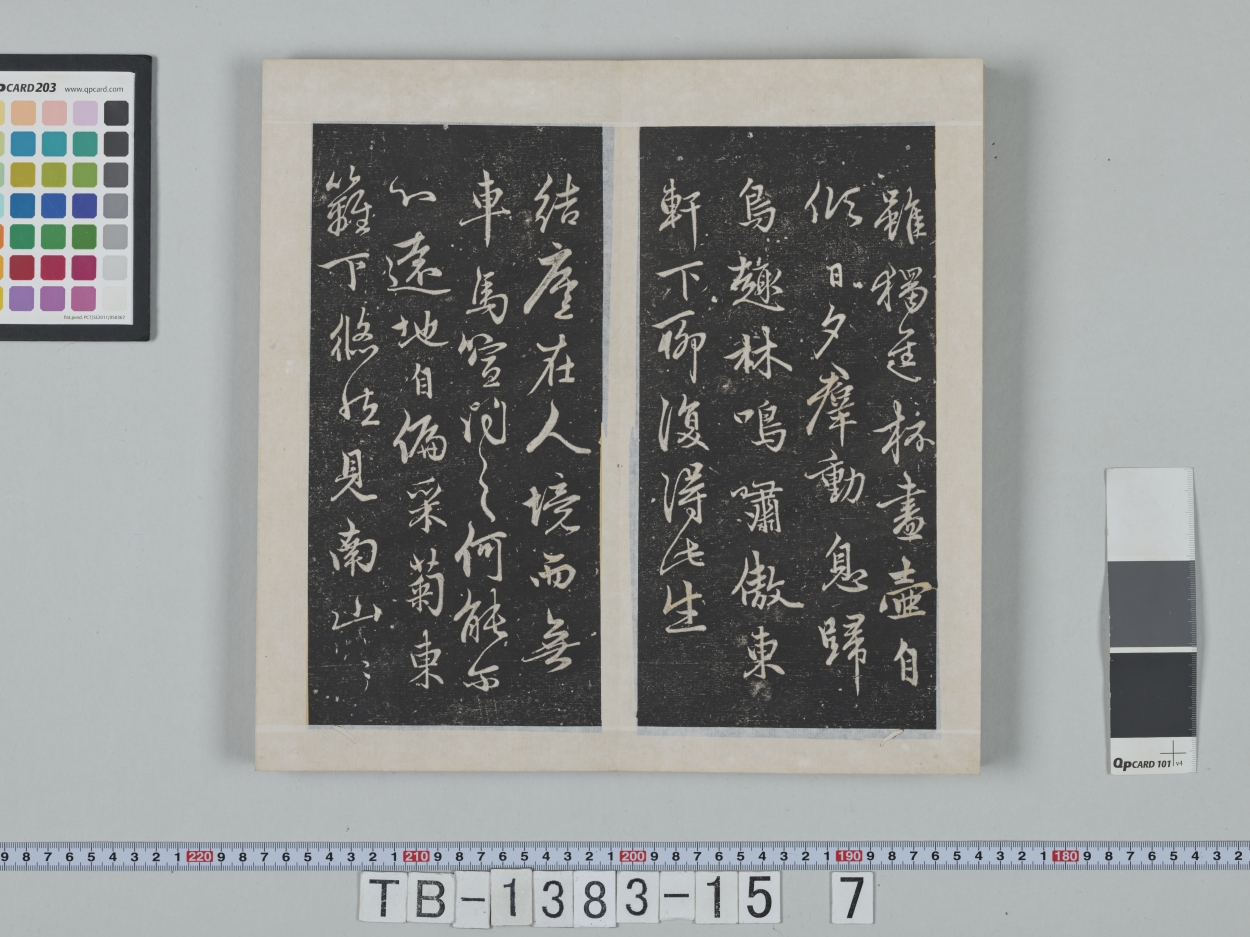 雖獨進杯盡壺自
傾日夕羣動息歸
鳥趨林鳴嘯傲東
軒下聊復得此生
結廬在人境而無
車馬喧問君何能尔
心遠地自偏采菊東
籬下悠然見南山
pCARD 203 www.qpcard.com
QpCARD 101 v4
9 8 7 6 5 4 3 2 1 220 9 8 7 6 5 4 3 2 1 210 9 8 7 6 5 4 3 2 1 200 9 8 7 6 5 4 3 2 1 190 9 8 7 6 5 4 3 2 1 180 9 8 7 6 5 4 3 2
TB-1383-15 7